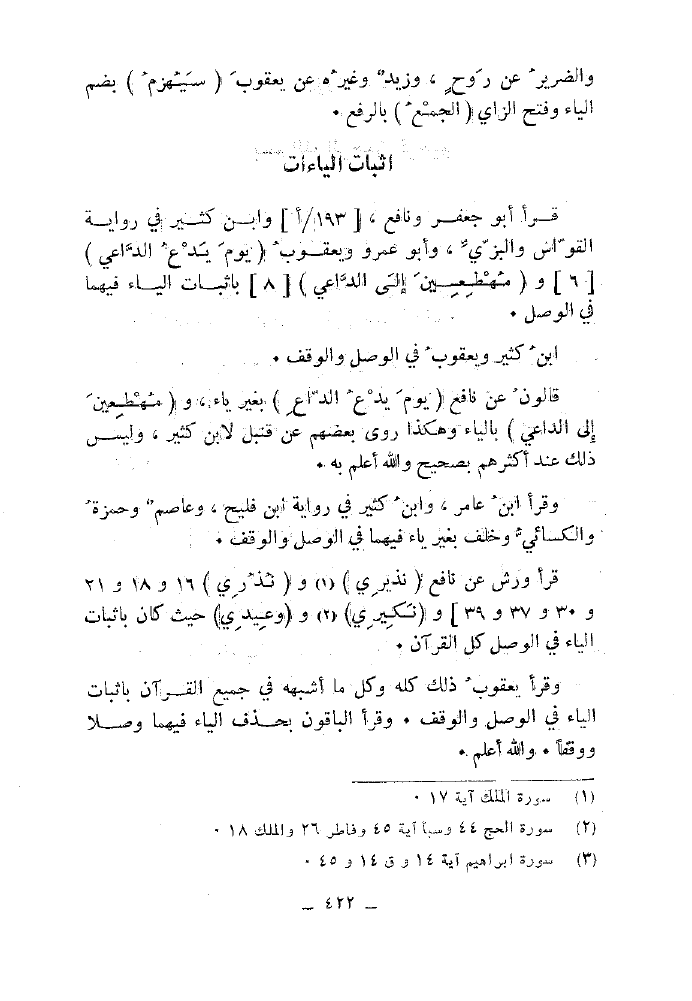 والضريرُ عن رَوحٍ ، وزيدٌ وغيرُه عن يعقوبَ ( سَيُهزمُ ) بضم
الياء وفتح الزاي ( الجمْعُ ) بالرفع •
اثبات الياءات
قـرأ أبو جعفـر ونافع ، [ ١٩٣/أ ] وابـن كثـير في روايـة
القوّاس والبزّيِّ ، وأبو عمرو ويعقـوبُ ( يومَ يَدْعُ الدَّاعي )
[ ٦ ] و ( مُهْطِعِـينَ إلَى الدَّاعي ) [ ٨ ] باثبـات اليـاء فيهما
في الوصل •
ابنُ كثير ويعقوبُ في الوصل والوقف •
قالونُ عن نافع ( يومَ يدْعُ الدّاعِ ) بغير ياء ، و ( مُهْطِعِينَ
إلى الداعي ) بالياء وهكذا روى بعضهم عن قنبل لابن كثير ، وليـس
ذلك عند أكثرهم بصحيح والله أعلم به •
وقرأ ابنُ عامر ، وابنُ كثير في رواية ابن فليح ، وعاصمٌ وحمزةُ
والكسائيُّ وخلف بغير ياء فيهما في الوصل والوقف •
قرأ ورش عن نافع ( نذيرِي ) (١) و ( نُذُرِي ) ١٦ و ١٨ و ٢١
و ٣٠ و ٣٧ و ٣٩ ] و (نَكِيرِي) (٢) و (وعِيدِي) حيث كان باثبات
الياء في الوصل كل القرآن •
وقرأ يعقوبُ ذلك كله وكل ما أشبهه في جميع القـرآن باثبات
الياء في الوصل والوقف • وقرأ الباقون بحـذف الياء فيهما وصـلا
ووقفاً • والله أعلم •
(١) سورة الملك آية ١٧ •
(٢) سورة الحج ٤٤ وسبأ آية ٤٥ وفاطر ٢٦ والملك ١٨ •
(٣) سورة ابراهيم آية ١٤ و ق ١٤ و ٤٥ •
_ ٤٢٢ _